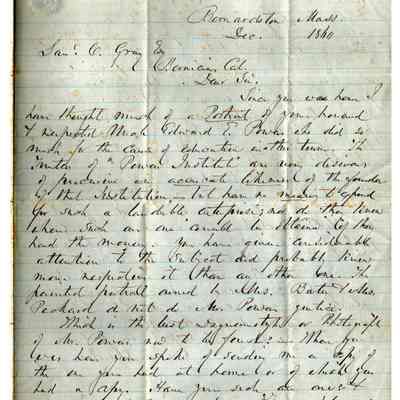 Bernardston Mass.
Dec. 1860
Saml. C. Gray Esq
Benicia, Cal.
Dear Sir,
Since you was here I
have thought much of a Portrait of your honored
& respected Uncle Edward E. Powers who did so
much for the cause of education in this town. The
Trustees of "Powers Institute" are very desirous
of procuring an accurate likeness of the founder
of that Institution — but have no means to expend
for such a laudable enterprise, nor do they know
where such an one could be obtained if they
had the money. You have given considerable
attention to the subject and probably know
more respecting it than any other one. The
painted portrait owned by Mrs. &  Mrs.
Packard do not do Mr. Powers justice.
Which is the best daguerreotype or Photograph
of Mr. Powers now to be found? — When you
was here you spoke of sending me a copy of
the one you had at home or of which you
had a copy. Have you such an one &